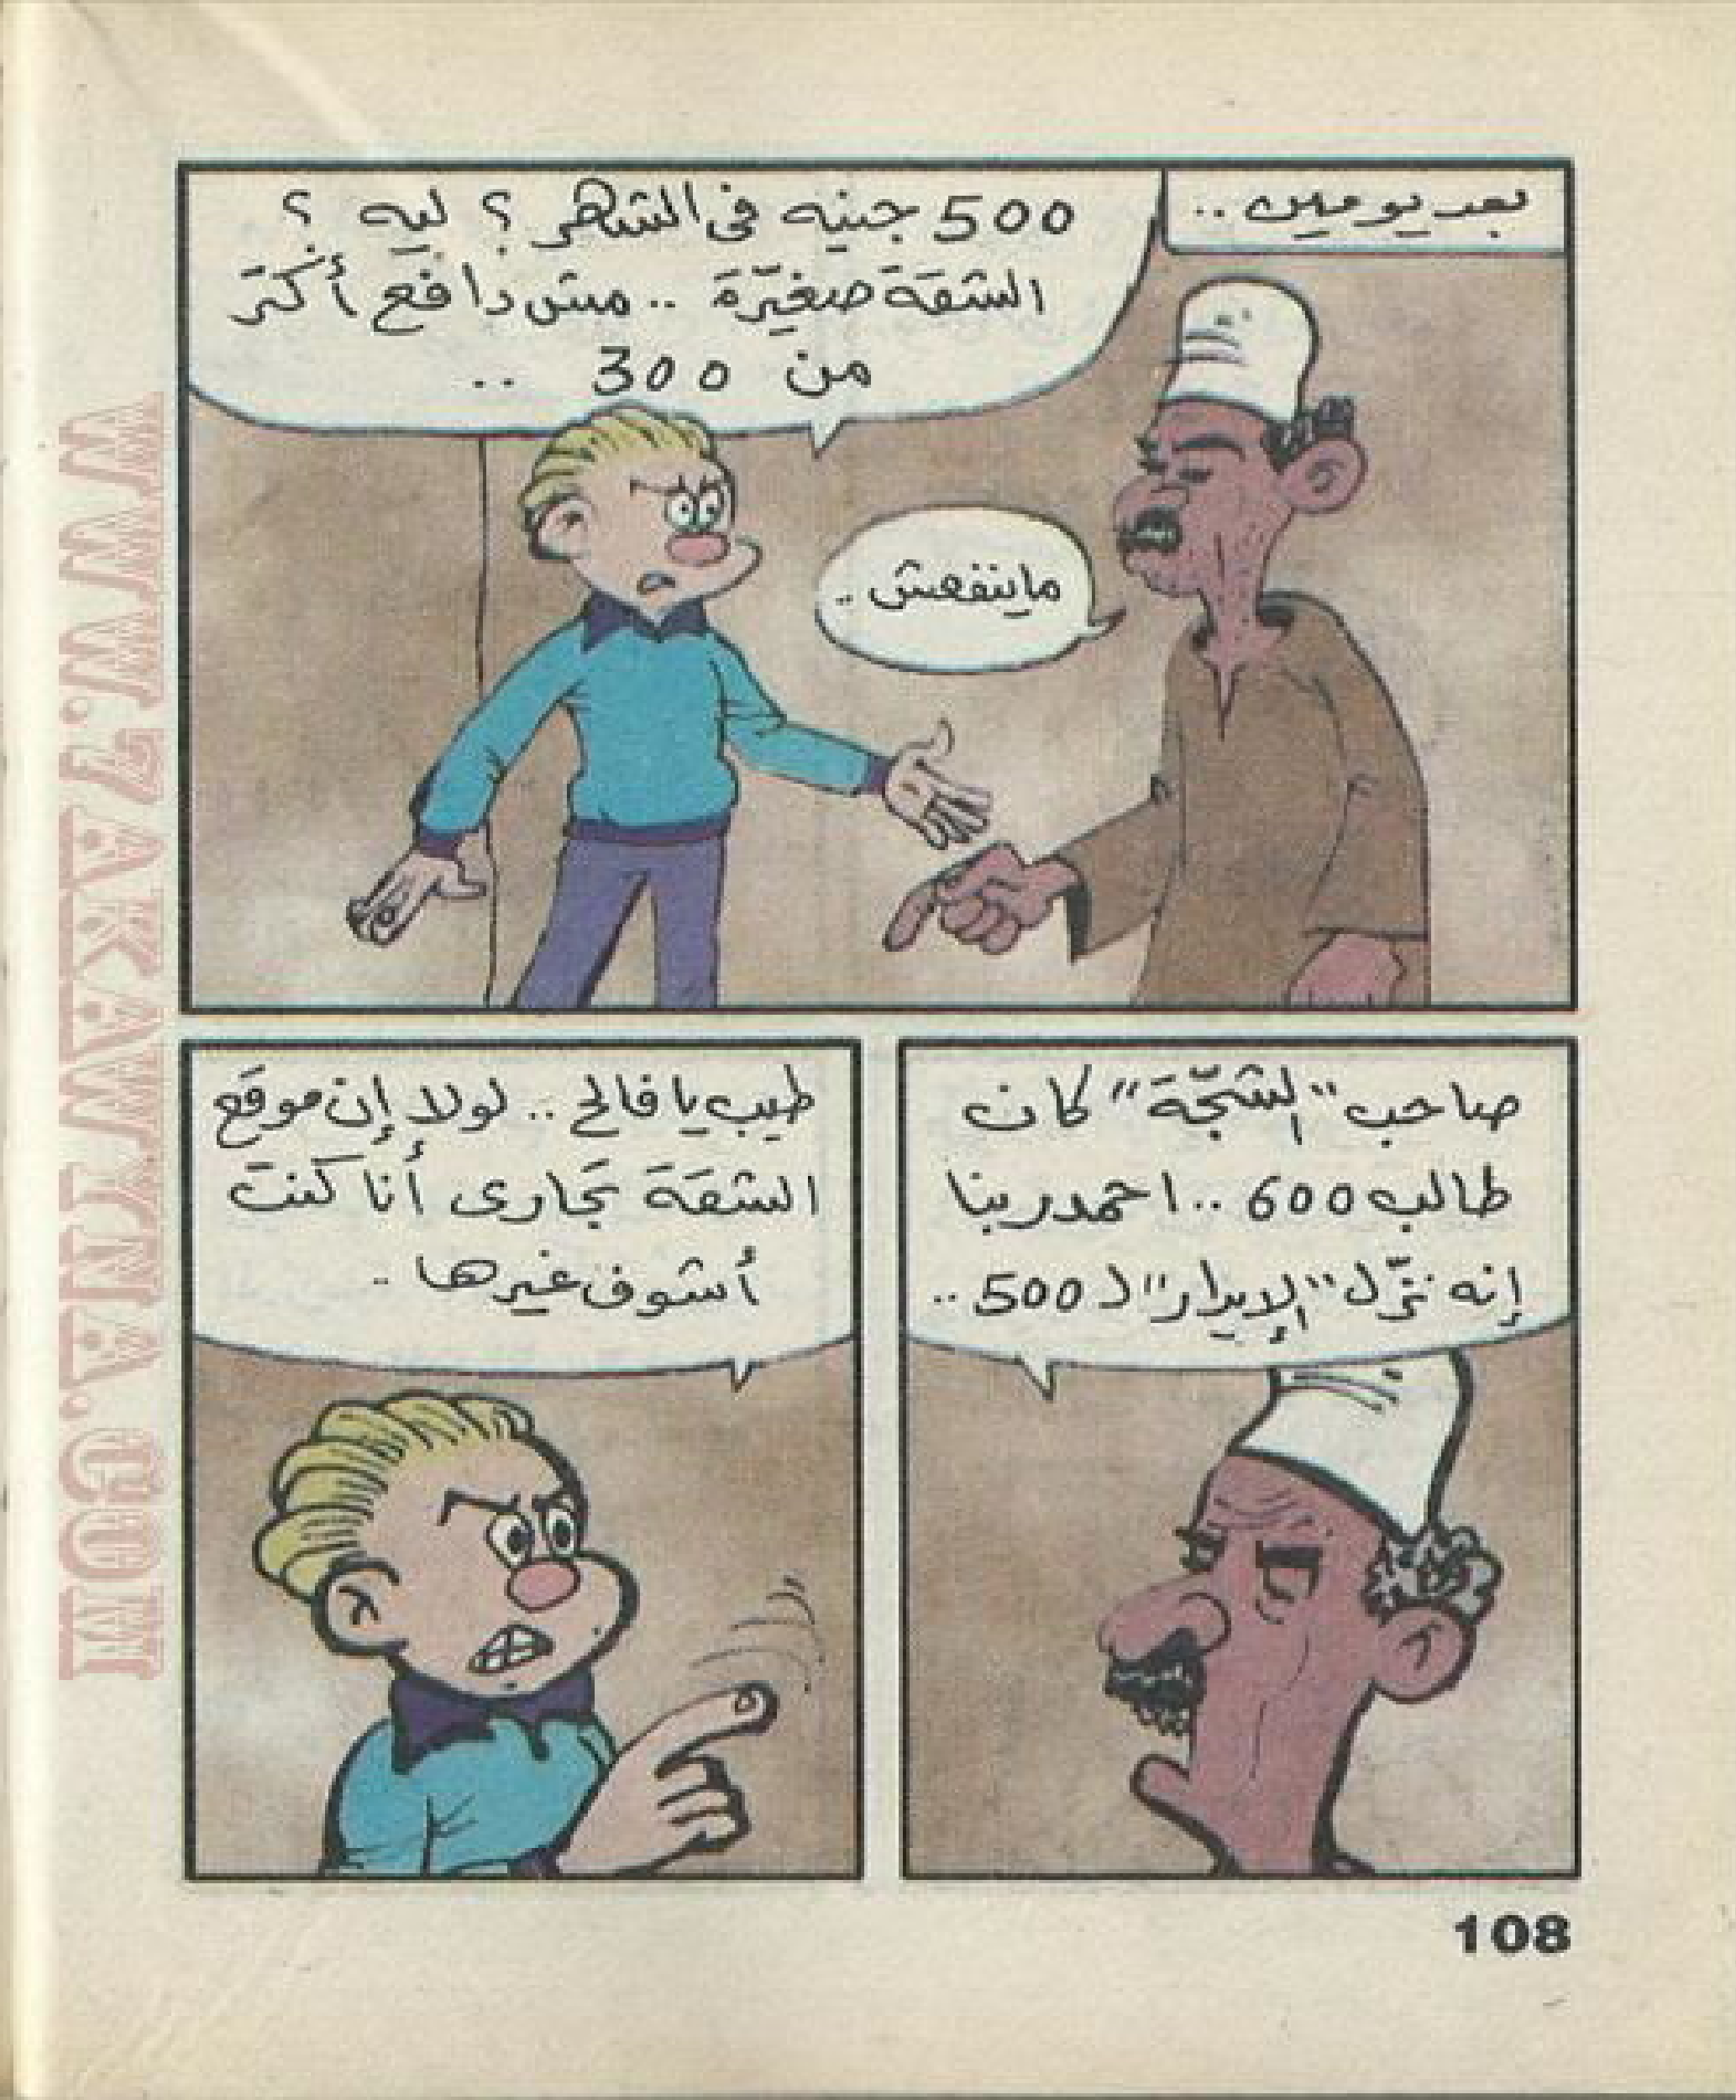 بعد يومين ..
500 جنيه فى الشهر ؟ ليه ؟
الشقة صغيّرة .. مش دافع أكتر
من 300 ..
ماينفعش ..
صاحب "الشجّة" كان
طالب 600 .. احمد ربنا
إنه نزّل "الإيدار" لـ 500 ..
طيب يا فالح .. لولا إن موقع
الشقة تجارى أنا كنت
أشوف غيرها ..
108
WWW.7AKAWITNA.COM